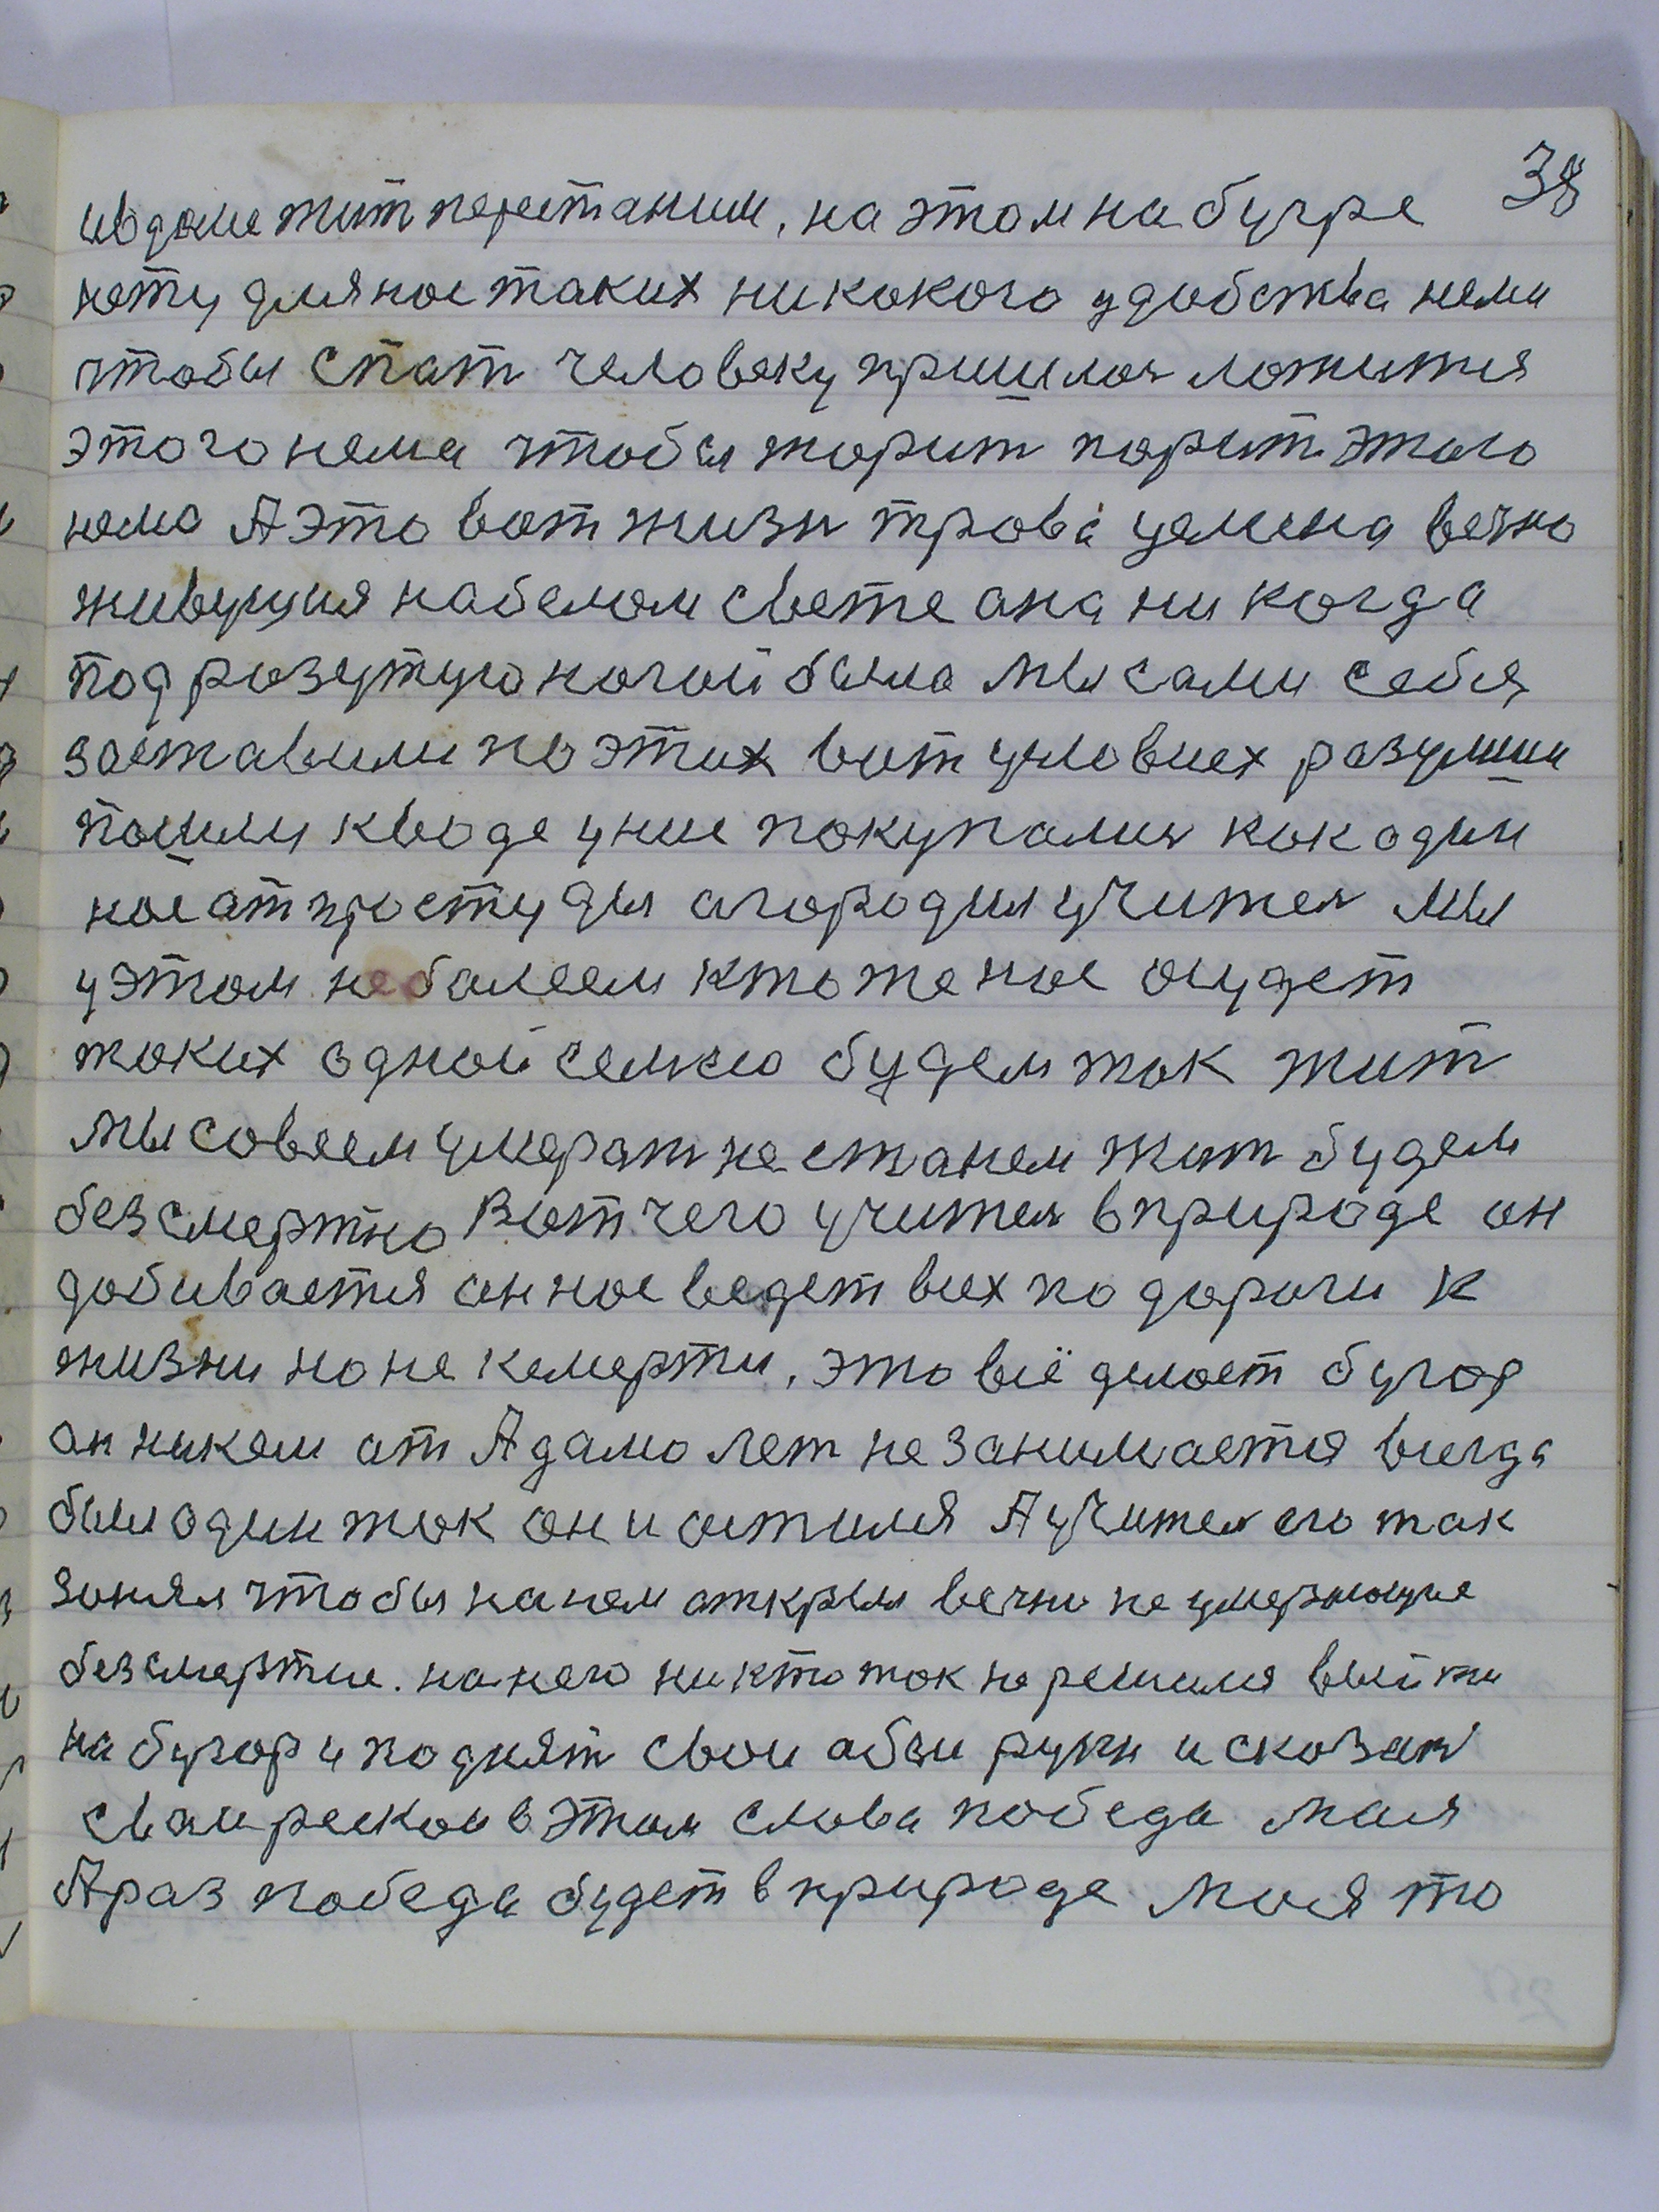 38
ивдоме жит перестаним, на этом на бугре
нету для нос таких никокого удобства неми
чтобы спат человеку пришлос ложится
этого нема чтобы жорит порит этого
немо А это вот жизн трова целена вечно
живущия на белом свете она ни когда
под розутую ногой была Мы сами себя
заставили по этих вот условиех розулиш
пошли кводе у ние покупалис кок один
нос от простуды огородил учител Мы
у этом не болеем кто же нос осудет
токих одной семьею будем ток жит
Мы совсем умерат не станем жит будем
безсмертно Вот чего учител в природе он
добивается он нос ведет всех по дороги к
жизни но не ксмерти, это всё делоет бугор
он никем от Адамо лет не занимается всегда
был один ток он и остился А учител его так
зонял чтобы на нем открыл вечно не умерающие
безсмертие. на него никто ток не решился выйти
на бугор и поднят свои обеи руки и сказат
сваи рескои в этом слова победа моя
А раз победа будет в природе моя то